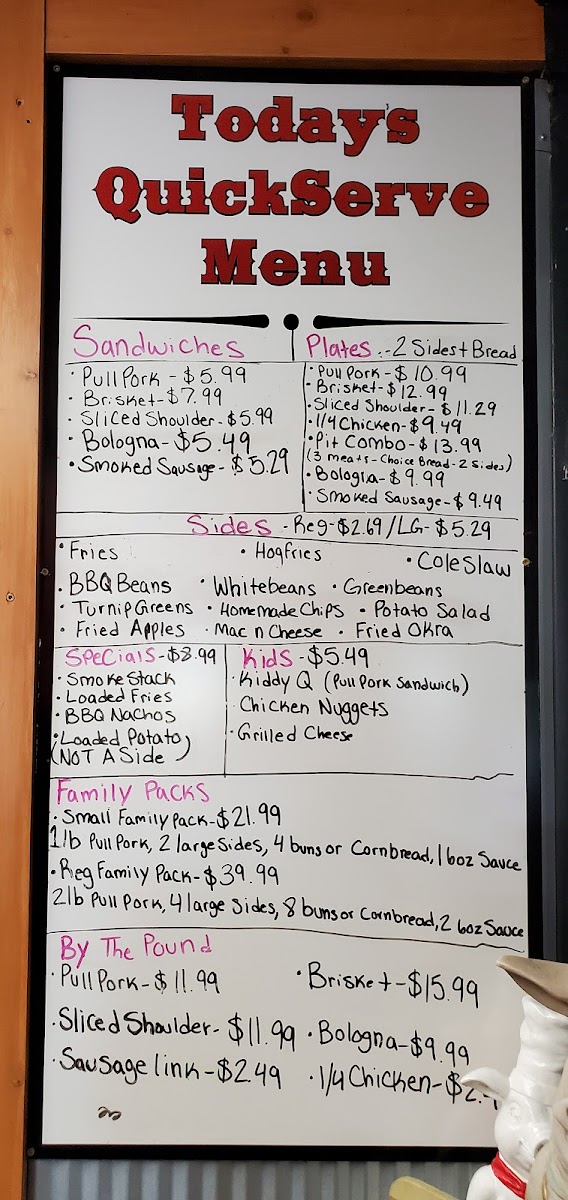 Today's
QuickServe
Menu
Sandwiches
• Pull Pork - $5.99
• Brisket - $7.99
• Sliced Shoulder - $5.99
• Bologna - $5.49
• Smoked Sausage - $5.29
Plates - 2 Sides + Bread
• Pull Pork - $10.99
• Brisket - $12.99
• Sliced Shoulder - $11.29
• 1/4 Chicken - $9.49
• Pit Combo - $13.99
(3 meats - Choice Bread - 2 Sides)
• Bologna - $9.99
• Smoked Sausage - $9.49
Sides - Reg - $2.69 / LG - $5.29
• Fries • Hogfries • Cole Slaw
• BBQ Beans • Whitebeans • Greenbeans
• Turnip Greens • Homemade Chips • Potato Salad
• Fried Apples • Mac n Cheese • Fried Okra
Specials - $8.99
• Smoke Stack
• Loaded Fries
• BBQ Nachos
• Loaded Potato
(NOT A Side)
Kids - $5.49
• Kiddy Q (Pull Pork Sandwich)
Chicken Nuggets
• Grilled Cheese
Family Packs
• Small Family Pack - $21.99
1lb Pull Pork, 2 large Sides, 4 buns or Cornbread, 1 6oz Sauce
• Reg Family Pack - $39.99
2lb Pull Pork, 4 large Sides, 8 buns or Cornbread, 2 6oz Sauce
By The Pound
• Pull Pork - $11.99 • Brisket - $15.99
• Sliced Shoulder - $11.99 • Bologna - $9.99
• Sausage link - $2.49 • 1/4 Chicken - $2.